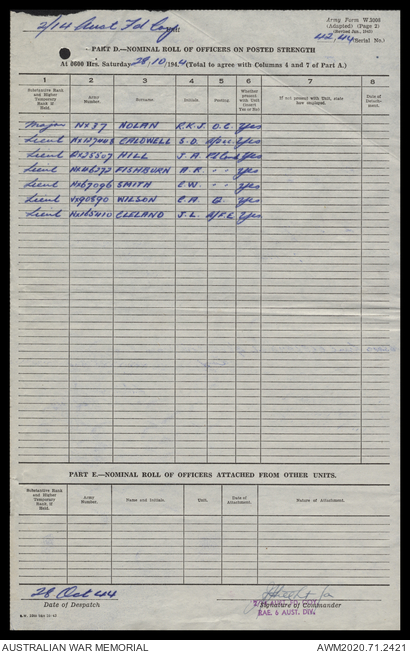 2/14 Aust Fd Coy Unit
Army Form W.3008
(Adapted) (Page 2)
(Revised Jan., 1943)
42.44 (Serial No.)
PART D.—NOMINAL ROLL OF OFFICERS ON POSTED STRENGTH
At 0600 Hrs. Saturday 28.10.1944 (Total to agree with Columns 4 and 7 of Part A.)
1 2 3 4 5 6 7 8
Substantive Rank and Higher Temporary Rank if Held. Army Number. Surname Initials. Posting Whether present with Unit (Insert Yes or No) If not present with Unit, state how employed. Date of Detachment.
Major NX37 NOLAN K.K.J. O.C. Yes
Lieut CALDWELL S.D. Yes
Lieut HILL J.A. Yes
Lieut FISHBURN A.R. " " Yes
Lieut NX67096 SMITH E.W. " " Yes
Lieut VX90890 WILSON C.A. Yes
Lieut CLELAND J.L. Yes
PART E.—NOMINAL ROLL OF OFFICERS ATTACHED FROM OTHER UNITS.
Substantive Rank and Higher Temporary Rank if Held. Army Number. Name and Initials. Unit. Date of Attachment. Nature of Attachment.
28 Oct 44
Date of Despatch
Signature of Commander
RAE. 6 AUST. DIV.
AUSTRALIAN WAR MEMORIAL
AWM2020.71.2421